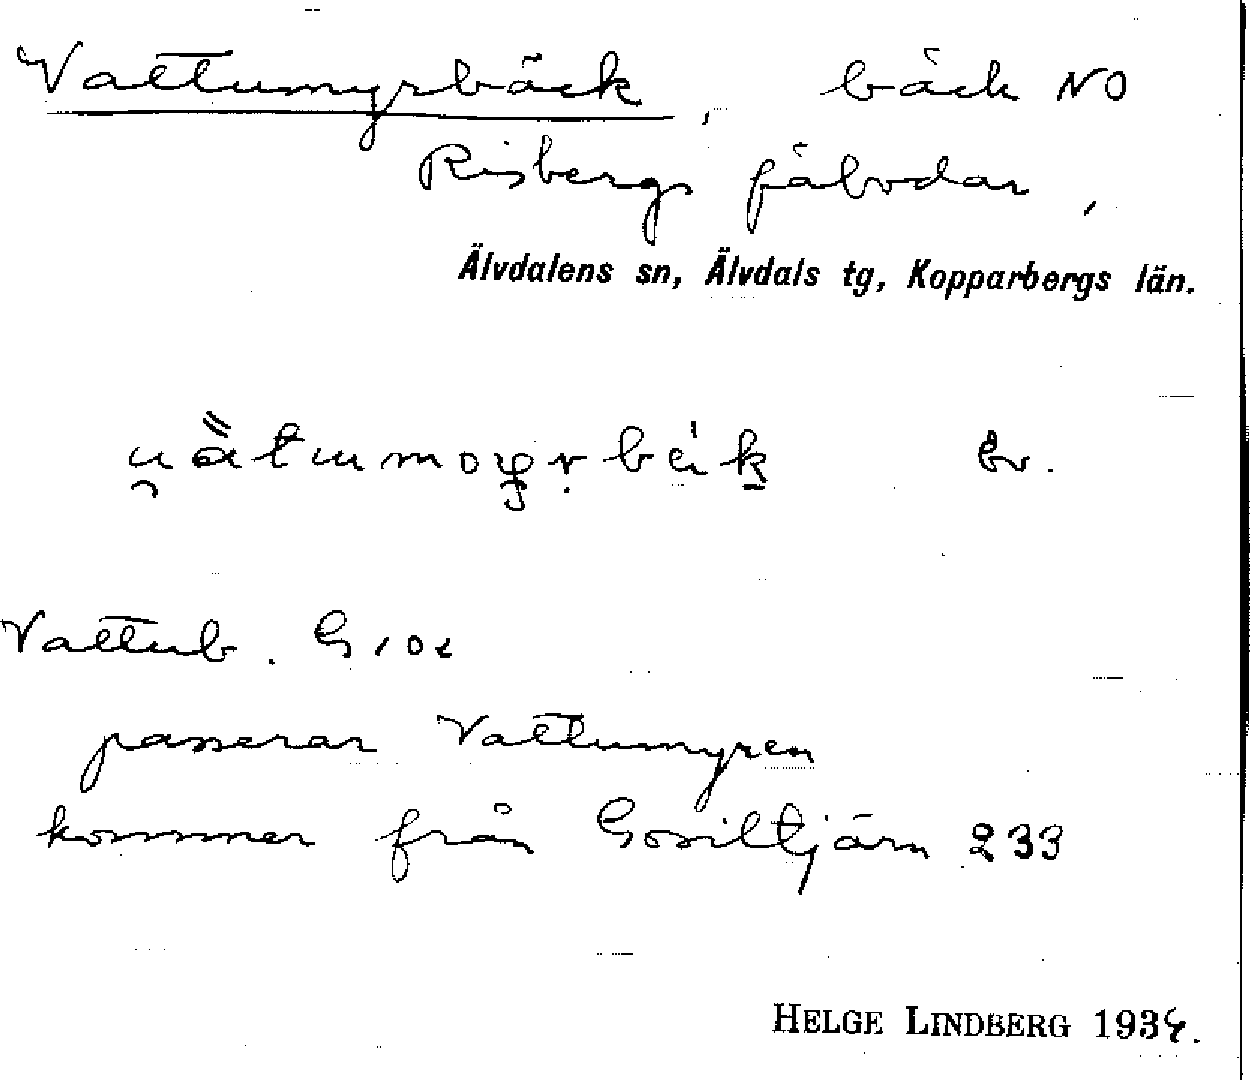 Vattumyrbäck, bäck NO
Risbergs fäbodar,
Älvdalens sn, Älvdals tg, Kopparbergs län.
Vattub. G 102
passerar Vattumyren
kommer från Gosiltjärn 233
HELGE LINDBERG 1934.